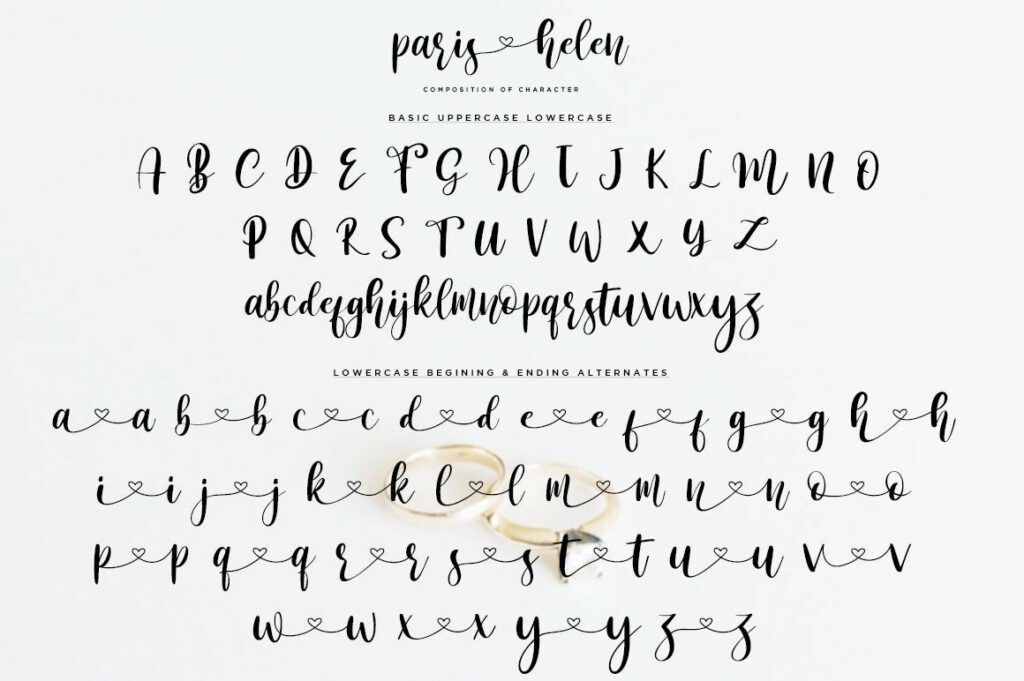 paris helen
COMPOSITION OF CHARACTER
BASIC UPPERCASE LOWERCASE
A B C D E F G H I J K L M N O
P Q R S T U V W X Y Z
abcdefghijklmnopqrstuvwxyz
LOWERCASE BEGINING & ENDING ALTERNATES
a a b b c c d d e e f f g g h h
i i j j k k l l m m n n o o
p p q q r r s s t t u u v v
w w x x y y z z